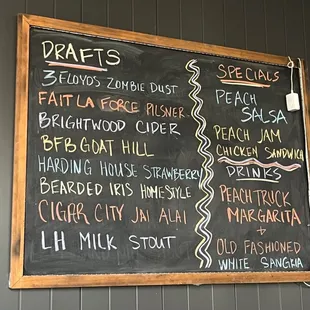 DRAFTS
3 FLOYDS ZOMBIE DUST
FAIT LA FORCE PILSNER
BRIGHTWOOD CIDER
BFB GOAT HILL
HARDING HOUSE STRAWBERRY
BEARDED IRIS HOMESTYLE
CIGAR CITY JAI ALAI
LH MILK STOUT
SPECIALS
PEACH
SALSA
PEACH JAM
CHICKEN SANDWICH
DRINKS
PEACH TRUCK
MARGARITA
+
OLD FASHIONED
WHITE SANGRIA